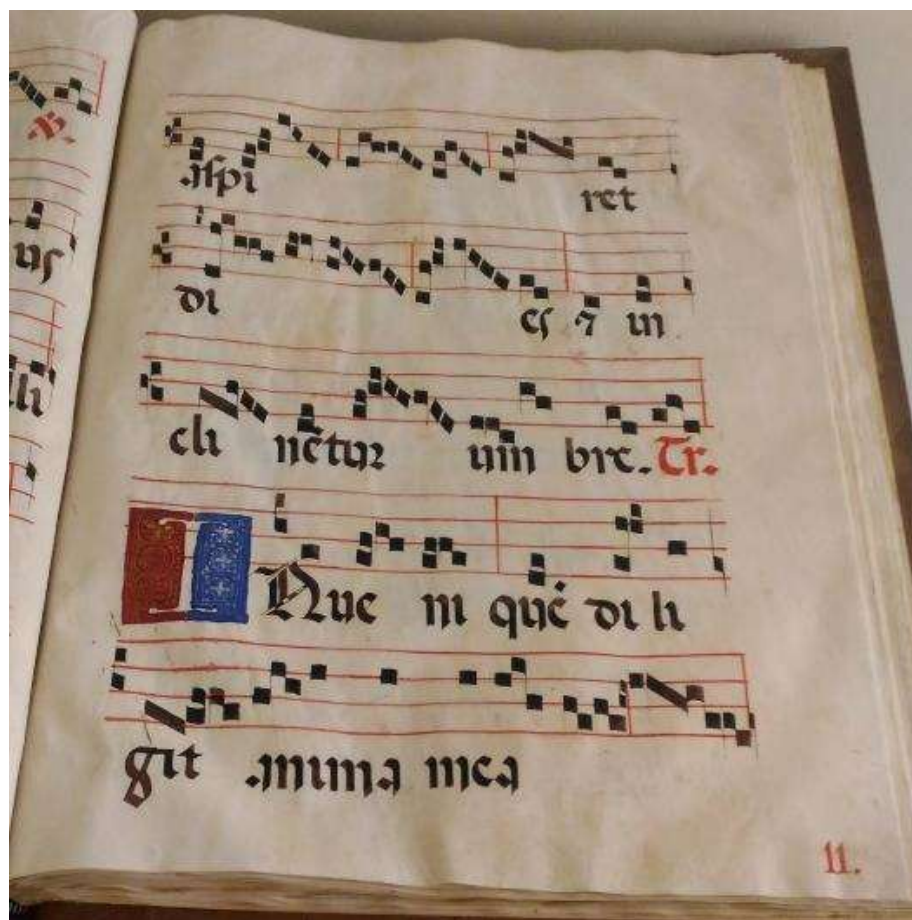 ℟.
us
.aspi ret
di es ⁊ in
li
cli nẽtur um bre. Tr.
INue ni quẽ di li
git .anima mea
11.